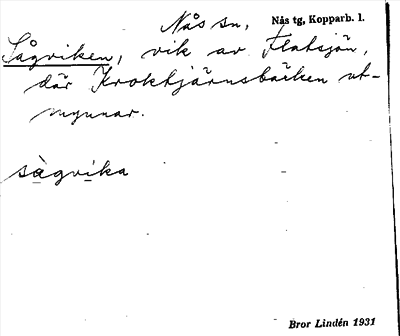 Nås sn, Nås tg, Kopparb. l.
Sågviken, vik av Flatsjön,
där Kroktjärnsbäcken ut-
mynnar.
sàgvika
Bror Lindén 1931